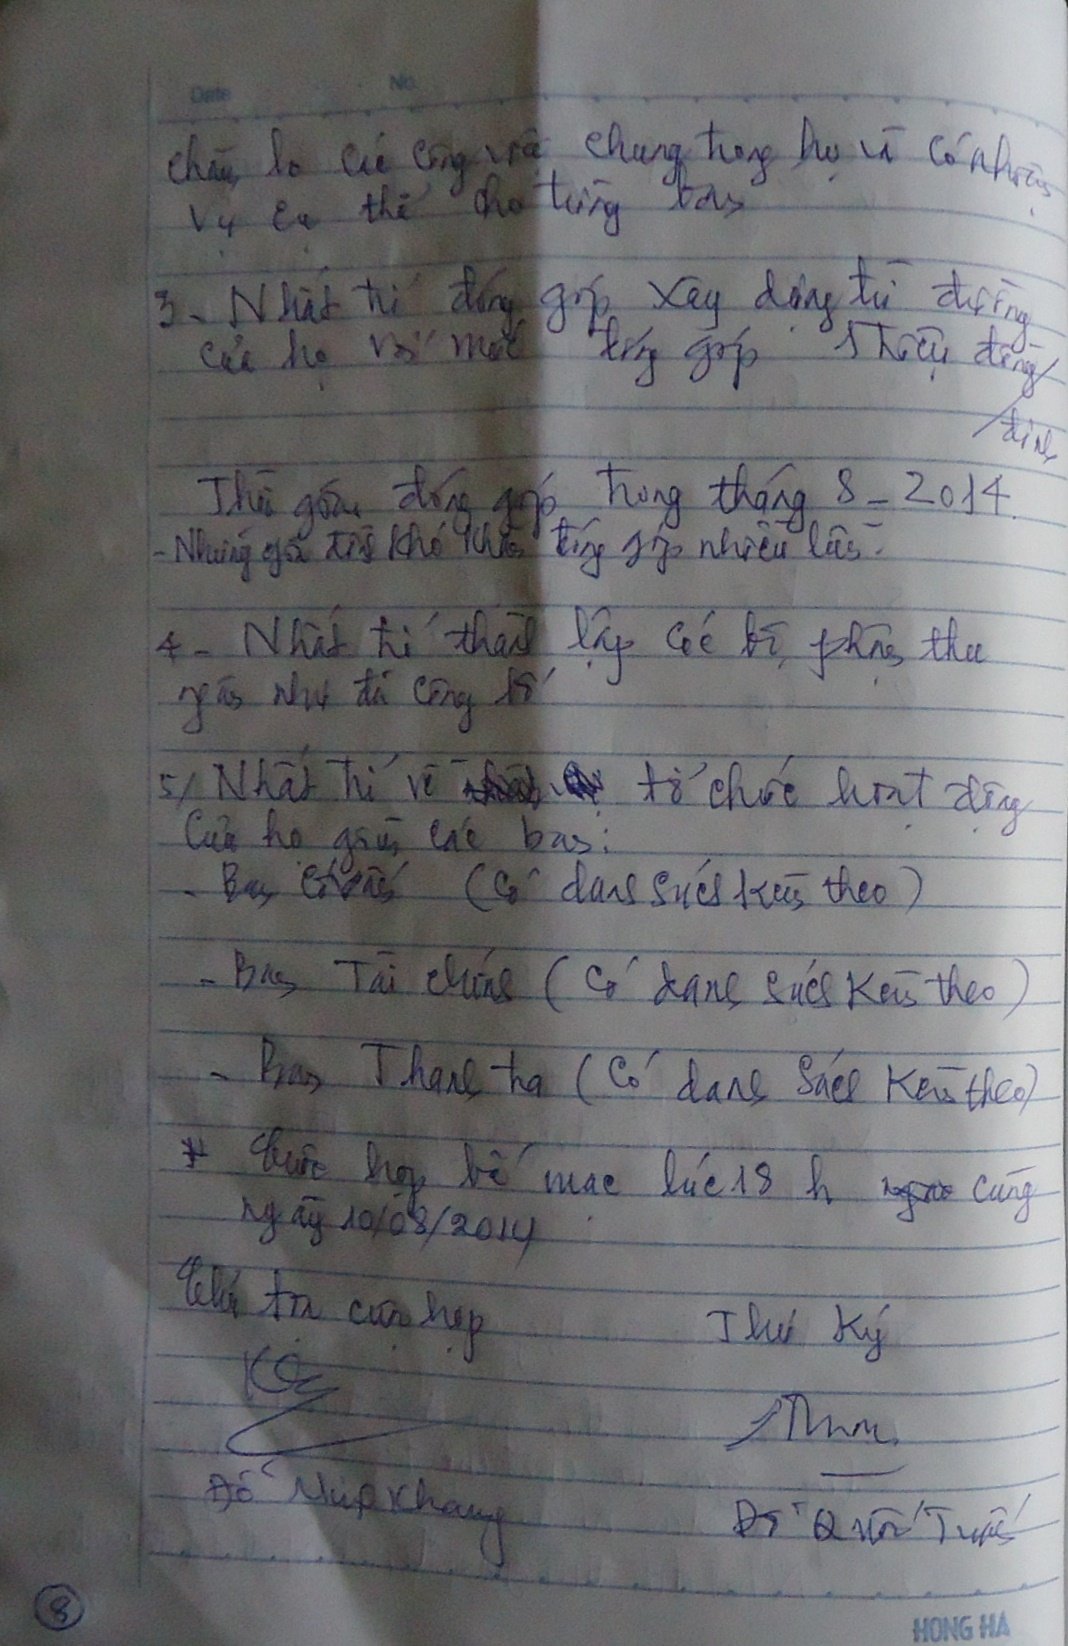 Date No.
chăm lo các công việc chung trong họ và có nhiệm
vụ cụ thể cho từng ban
3- Nhất trí đóng góp xây dựng từ đường
của họ với mức đóng góp 1 triệu đồng/
/đinh
Thời gian đóng góp trong tháng 8-2014.
- Những gia đình khó khăn đóng góp nhiều lần.
4- Nhất trí thành lập các bộ phận thu
ngân như đã công bố
5/ Nhất trí về tổ chức hoạt động
của họ gồm các ban:
- Ban cố vấn (có danh sách kèm theo)
- Ban Tài chính (có danh sách kèm theo)
- Ban Thanh tra (có danh sách kèm theo)
* Cuộc họp bế mạc lúc 18 h cùng
ngày 10/08/2014
Chủ tọa cuộc họp Thư Ký
Đỗ Khang Đỗ Quốc Tuấn
8
HONG HA